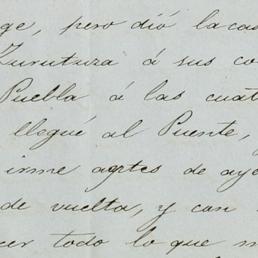 ge, pero dió la cas
Zurutuza á sus co
Puebla á las cuat
llegué al Puente,
irme antes de aye
de vuelta, y con
cer todo lo que m